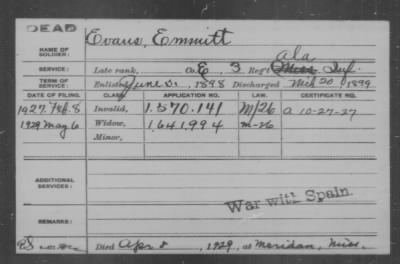 DEAD
NAME OF SOLDIER: Evans, Emmitt
SERVICE: Late rank, Co. E 3 Reg't Ala Miss Inf.
TERM OF SERVICE: Enlisted June 21, 1898 Discharged Mch 20, 1899
DATE OF FILING. CLASS. APPLICATION NO. LAW. CERTIFICATE NO.
1927 Feb. 8 Invalid, 1.570.141 M/26 a 10-27-27
1929 May 6 Widow, 1,641,994 m-26
Minor,
ADDITIONAL SERVICES:
War with Spain.
REMARKS:
Died Apr 8, 1929, at Meridan, Miss.